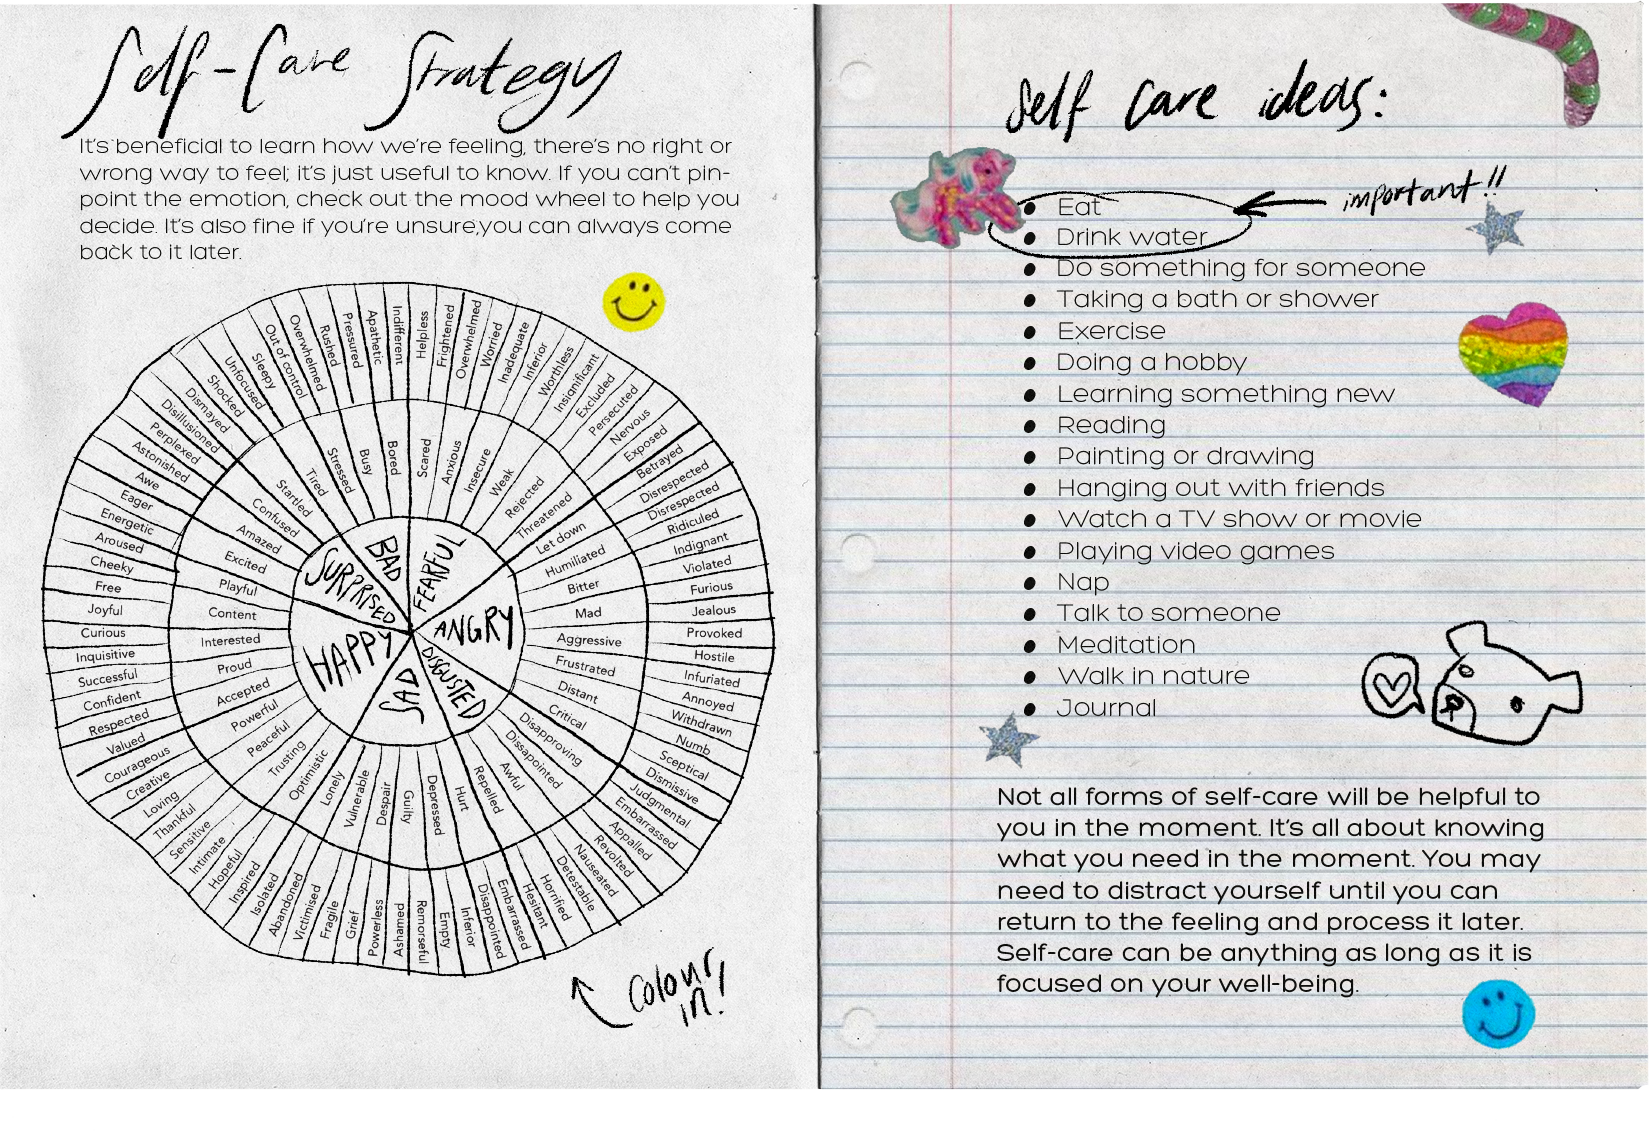 Self-Care Strategy
It's beneficial to learn how we're feeling, there's no right or
wrong way to feel; it's just useful to know. If you can't pin-
point the emotion, check out the mood wheel to help you
decide. It's also fine if you're unsure,you can always come
back to it later.
BAD
FEARFUL
ANGRY
DISGUSTED
SAD
HAPPY
SURPRISED
Scared
Anxious
Insecure
Weak
Rejected
Threatened
Let down
Humiliated
Bitter
Mad
Aggressive
Frustrated
Distant
Critical
Disapproving
Dissapointed
Awful
Repelled
Hurt
Depressed
Guilty
Despair
Vulnerable
Lonely
Optimistic
Trusting
Peaceful
Powerful
Accepted
Proud
Interested
Content
Playful
Excited
Amazed
Confused
Startled
Tired
Stressed
Busy
Bored
Helpless
Frightened
Overwhelmed
Worried
Inadequate
Inferior
Worthless
Insignificant
Excluded
Persecuted
Nervous
Exposed
Betrayed
Disrespected
Disrespected
Ridiculed
Indignant
Violated
Furious
Jealous
Provoked
Hostile
Infuriated
Annoyed
Withdrawn
Numb
Sceptical
Dismissive
Judgmental
Embarrassed
Appalled
Revolted
Nauseated
Detestable
Horrified
Hesitant
Embarrassed
Disappointed
Inferior
Empty
Remorseful
Ashamed
Powerless
Grief
Fragile
Victimised
Abandoned
Isolated
Inspired
Hopeful
Intimate
Sensitive
Thankful
Loving
Creative
Courageous
Valued
Respected
Confident
Successful
Inquisitive
Curious
Joyful
Free
Cheeky
Aroused
Energetic
Eager
Awe
Astonished
Perplexed
Disillusioned
Dismayed
Shocked
Unfocused
Sleepy
Out of control
Overwhelmed
Rushed
Pressured
Apathetic
Indifferent
Colour
in!
Self care ideas:
important!!
• Eat
• Drink water
• Do something for someone
• Taking a bath or shower
• Exercise
• Doing a hobby
• Learning something new
• Reading
• Painting or drawing
• Hanging out with friends
• Watch a TV show or movie
• Playing video games
• Nap
• Talk to someone
• Meditation
• Walk in nature
• Journal
Not all forms of self-care will be helpful to
you in the moment. It's all about knowing
what you need in the moment. You may
need to distract yourself until you can
return to the feeling and process it later.
Self-care can be anything as long as it is
focused on your well-being.